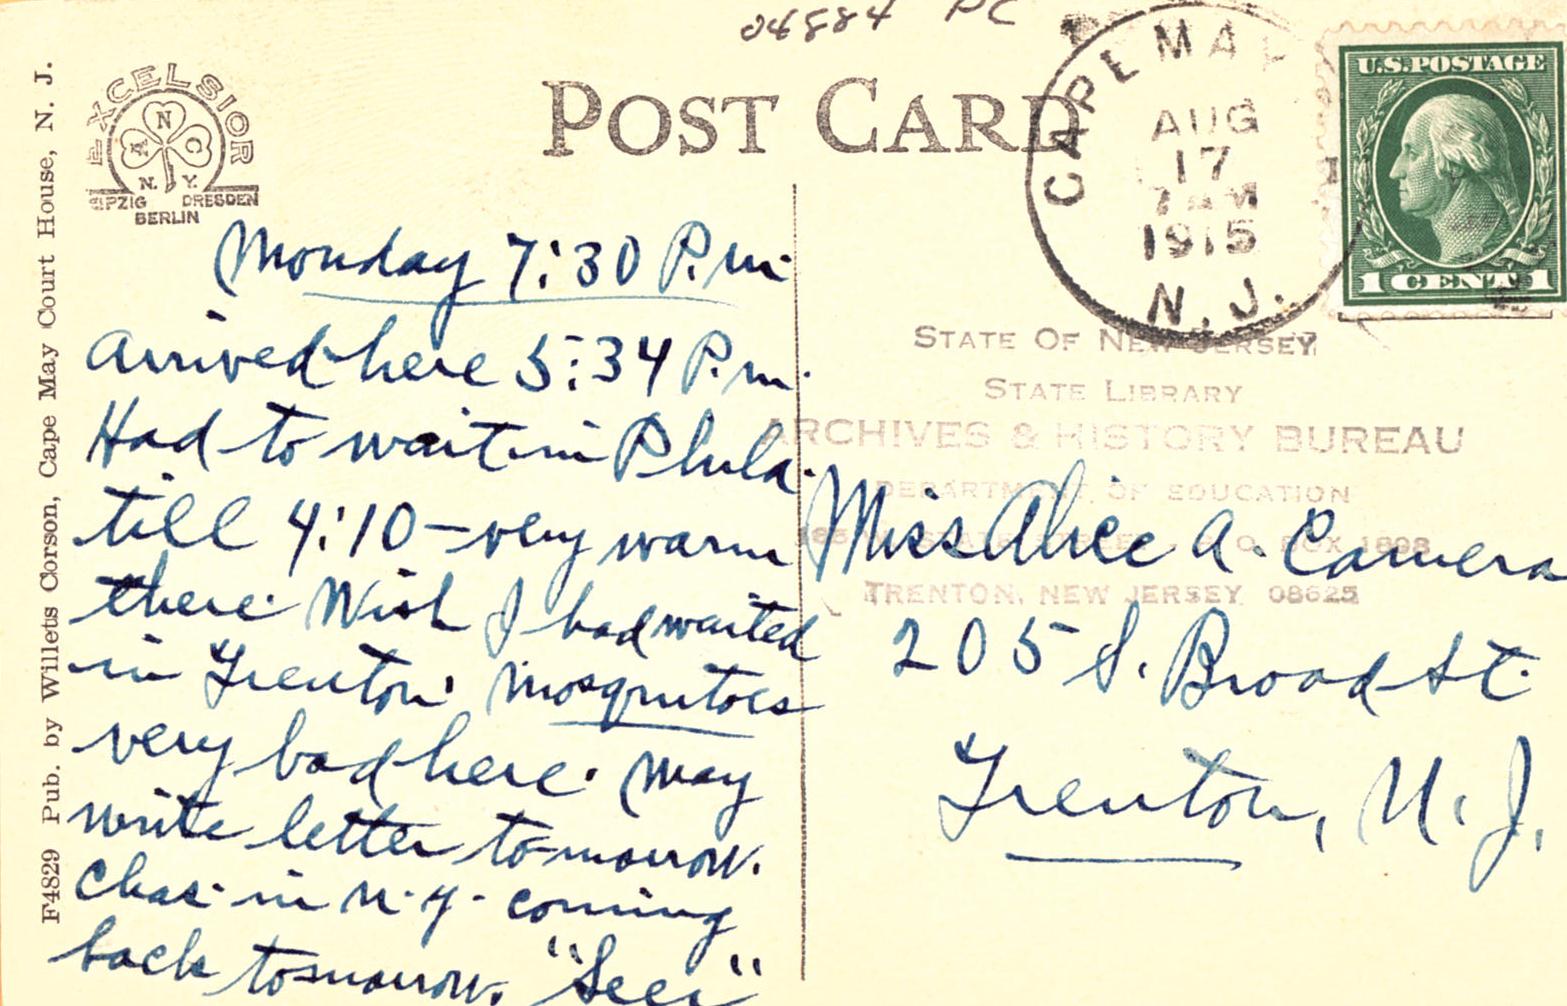 04884 PC
EXCELSIOR
A N C
N.Y.
LEIPZIG DRESDEN
BERLIN
POST CARD
CAPE MAY
AUG
17
7 AM
1915
N.J.
U.S. POSTAGE
1 CENT 1
F4829 Pub. by Willets Corson, Cape May Court House, N. J.
Monday 7:30 P.m.
Arrived here 5:34 P.m.
Had to wait in Phila.
till 4:10 – very warm
there. Wish I had waited
in Trenton. Mosquitoes
very bad here. May
write letter tomorrow.
Chas. in N.Y. coming
back tomorrow.
STATE OF NEW JERSEY
STATE LIBRARY
ARCHIVES & HISTORY BUREAU
DEPARTMENT OF EDUCATION
STATE STREET, P.O. BOX 1898
TRENTON, NEW JERSEY 08625
Miss Alice A. Camera
205 S. Broad St.
Trenton, N.J.